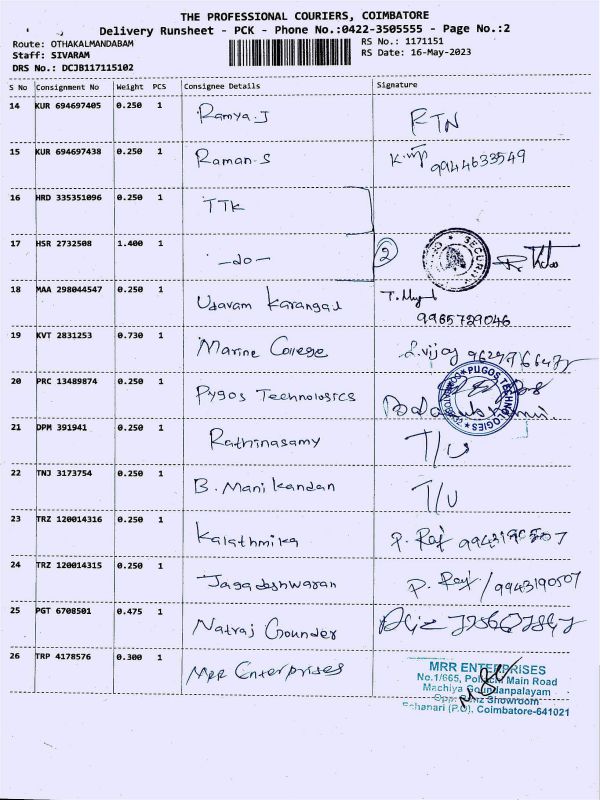 THE PROFESSIONAL COURIERS, COIMBATORE
Delivery Runsheet - PCK - Phone No.:0422-3505555 - Page No.:2
Route: OTHAKALMANDABAM
Staff: SIVARAM
DRS No.: DCJB117115102
RS No.: 1171151
RS Date: 16-May-2023
S No Consignment No Weight PCS Consignee Details Signature
14 KUR 694697405 0.250 1 Ramya.J RTN
15 KUR 694697438 0.250 1 Raman.S 9944633549
16 HRD 335351096 0.250 1 TTK
17 HSR 2732508 1.400 1 -do- 2 SECURITY
18 MAA 298044547 0.250 1 Udavam Karangal T.
9965729046
19 KVT 2831253 0.730 1 Marine College S.vijay
20 PRC 13489874 0.250 1 Pygos Technologies PUGOS TECHNOLOGIES
21 DPM 391941 0.250 1 Rathinasamy T/U
22 TNJ 3173754 0.250 1 B. Manikandan T/U
23 TRZ 120014316 0.250 1 Kalathmika P. Raj 9943190507
24 TRZ 120014315 0.250 1 Jagadeshwaran P. Raj / 9943190507
25 PGT 6708501 0.475 1 Natraj Gounder
26 TRP 4178576 0.300 1 MRR Enterprises
MRR ENTERPRISES
No.1/665, Pollachi Main Road
Machiya Goundanpalayam
Opp. Showroom
Echanari (P.O), Coimbatore-641021